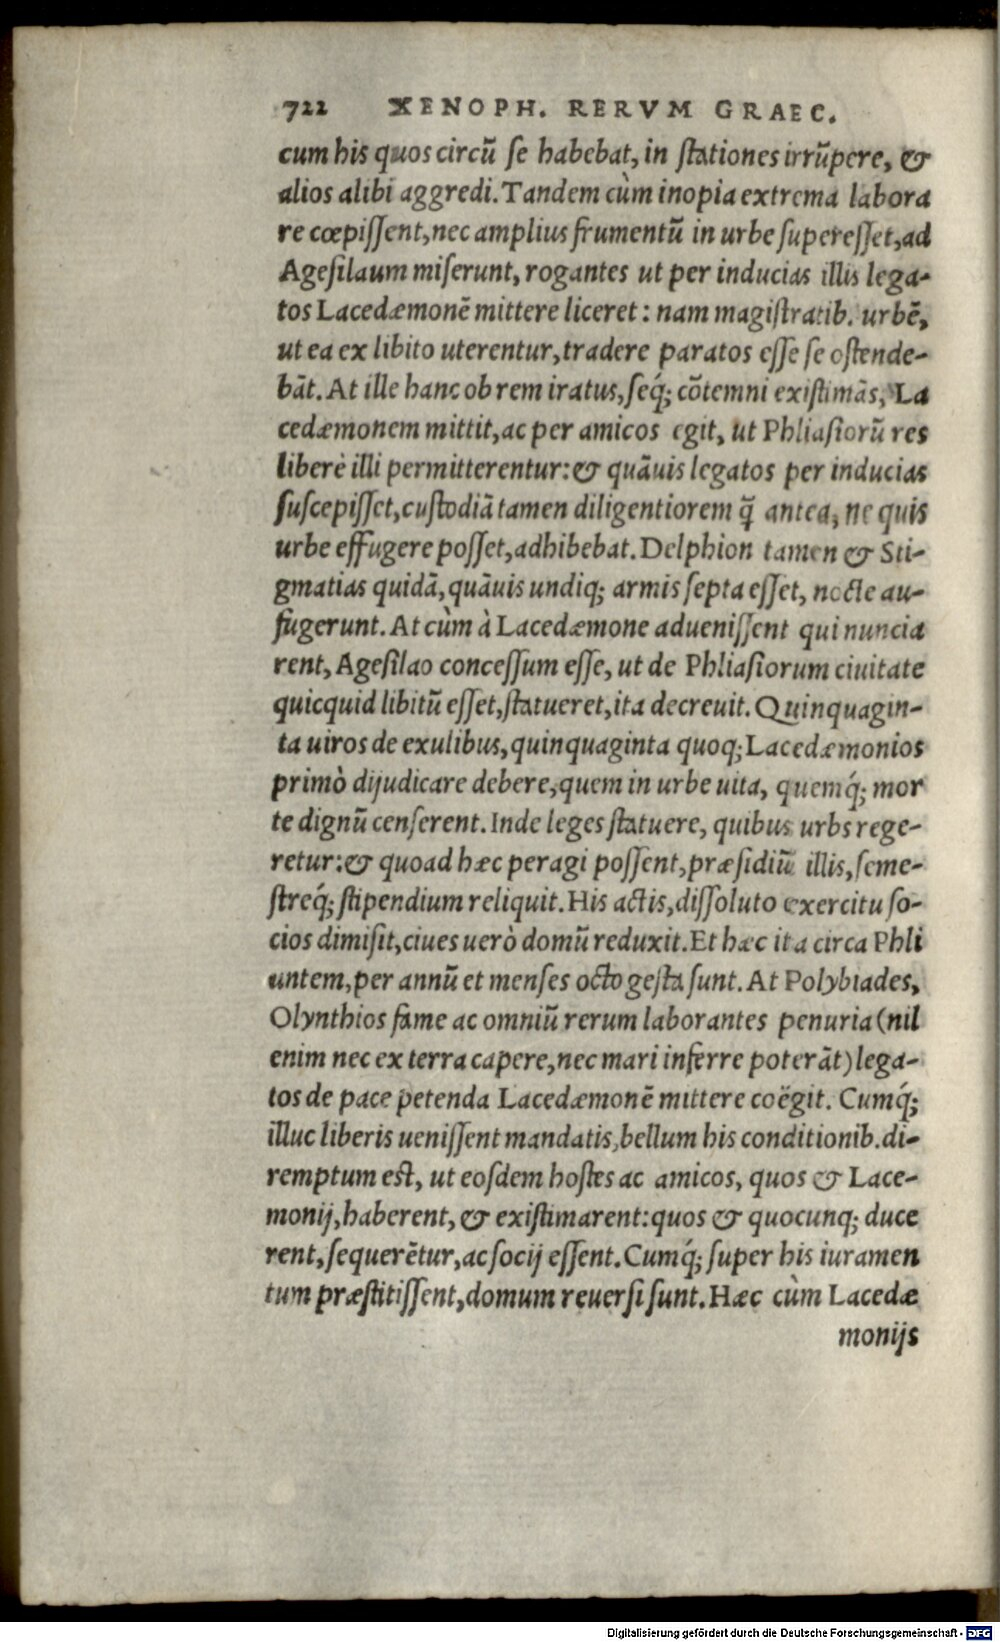 722 XENOPH. RERVM GRAEC.
cum his quos circũ se habebat, in stationes irrũpere, &
alios alibi aggredi. Tandem cùm inopia extrema labora
re cœpissent, nec amplius frumentũ in urbe superesset, ad
Agesilaum miserunt, rogantes ut per inducias illis lega-
tos Lacedæmonẽ mittere liceret: nam magistratib. urbẽ,
ut ea ex libito uterentur, tradere paratos esse se ostende-
bãt. At ille hanc ob rem iratus, seq́; cõtemni existimãs, La
cedæmonem mittit, ac per amicos egit, ut Phliasiorũ res
liberè illi permitterentur: & quãuis legatos per inducias
suscepisset, custodiã tamen diligentiorem q̃ antea, ne quis
urbe effugere posset, adhibebat. Delphion tamen & Sti-
gmatias quidã, quãuis undiq; armis septa esset, nocte au-
fugerunt. At cùm à Lacedæmone aduenissent qui nuncia
rent, Agesilao concessum esse, ut de Phliasiorum ciuitate
quicquid libitũ esset, statueret, ita decreuit. Quinquagin-
ta uiros de exulibus, quinquaginta quoq; Lacedæmonios
primò dijudicare debere, quem in urbe uita, quemq́; mor
te dignũ censerent. Inde leges statuere, quibus urbs rege-
retur: & quoad hæc peragi possent, præsidiũ illis, seme-
streq́; stipendium reliquit. His actis, dissoluto exercitu so-
cios dimisit, ciues uerò domũ reduxit. Et hæc ita circa Phli
untem, per annũ et menses octo gesta sunt. At Polybiades,
Olynthios fame ac omniũ rerum laborantes penuria (nil
enim nec ex terra capere, nec mari inferre poterãt) lega-
tos de pace petenda Lacedæmonẽ mittere coëgit. Cumq́;
illuc liberis uenissent mandatis, bellum his conditionib. di-
remptum est, ut eosdem hostes ac amicos, quos & Lace-
monij, haberent, & existimarent: quos & quocunq; duce
rent, sequerẽtur, ac socij essent. Cumq́; super his iuramen
tum præstitissent, domum reuersi sunt. Hæc cùm Lacedæ
monijs
Digitalisierung gefördert durch die Deutsche Forschungsgemeinschaft - DFG